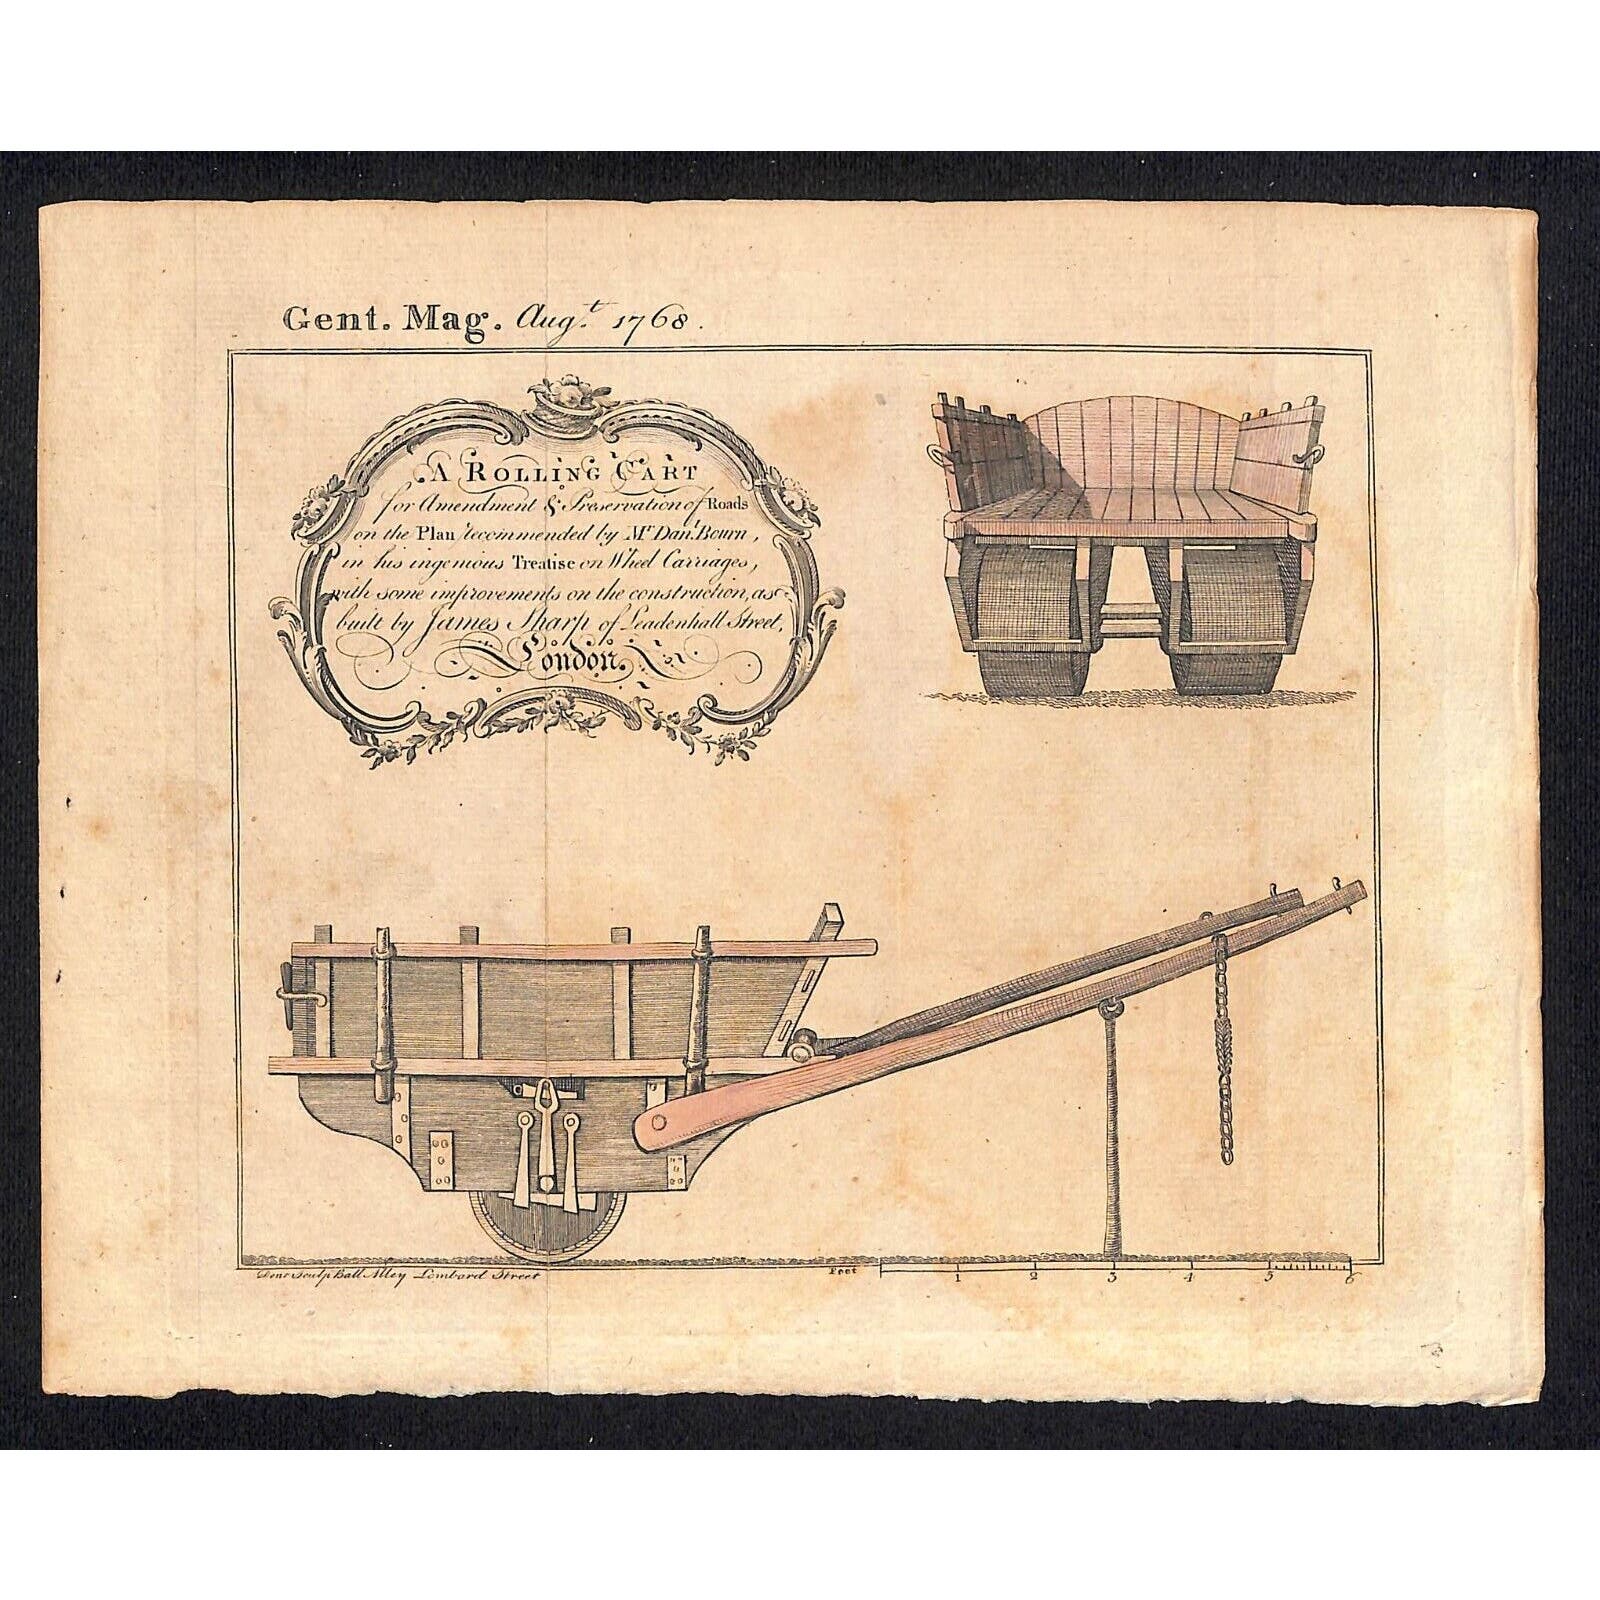 Gent. Mag. Augt. 1768.
A ROLLING CART
for Amendment & Preservation of Roads
on the Plan recommended by Mr. Dan. Bourn,
in his ingenious Treatise on Wheel Carriages,
with some improvements on the construction, as
built by James Sharp of Leadenhall Street,
London.
Sculp Ball Alley Lombard Street
Feet 1 2 3 4 5 6